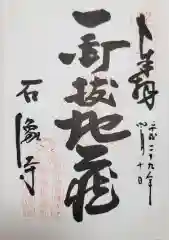 奉拝
平成二十九年
四月十日
釘抜地蔵
石像寺